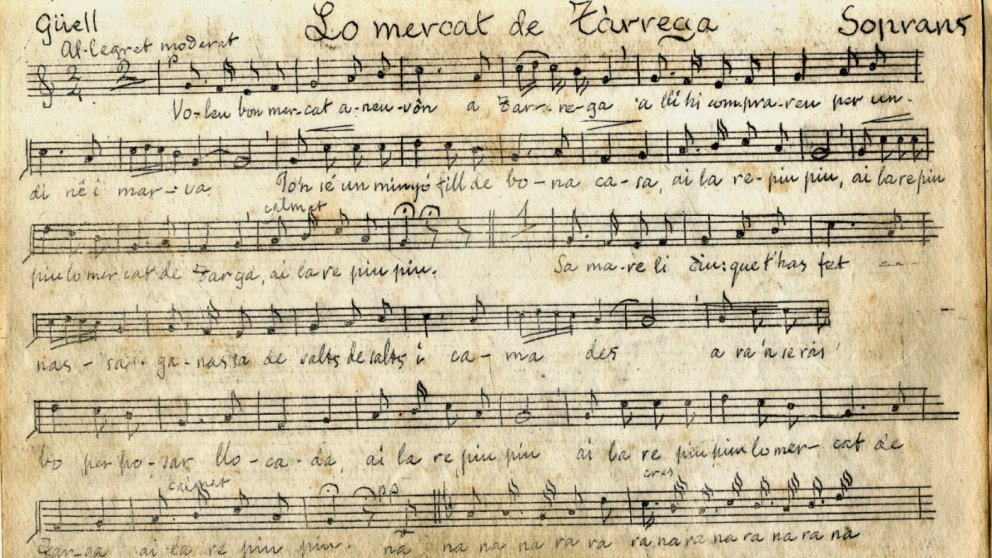 Güell Lo mercat de Tàrrega Soprans
Al-legret moderat
p
Vo-leu bon mer-cat a-neu-vôn a Tarr-re-ga a lli hi com-pra-reu per un.
di nê i mar-va Io'n sé un minyó fill de bo-na ca-sa, ai la re-piu piu, ai la re piu
calmat
piu lo mer cat de Targa, ai la re piu piu. Sa ma-re li diu: que t'has fet
nas-sa-ga-nassa de salts de salts i ca-ma des a ra'n se ràs
bo per po-sar llo-ca-da, ai la re piu piu ai la re piu piu lo mer-cat de
calmat pp cres
Tar-ga ai la re piu piu. na na na na ra ra ra na ra na ra na ra na